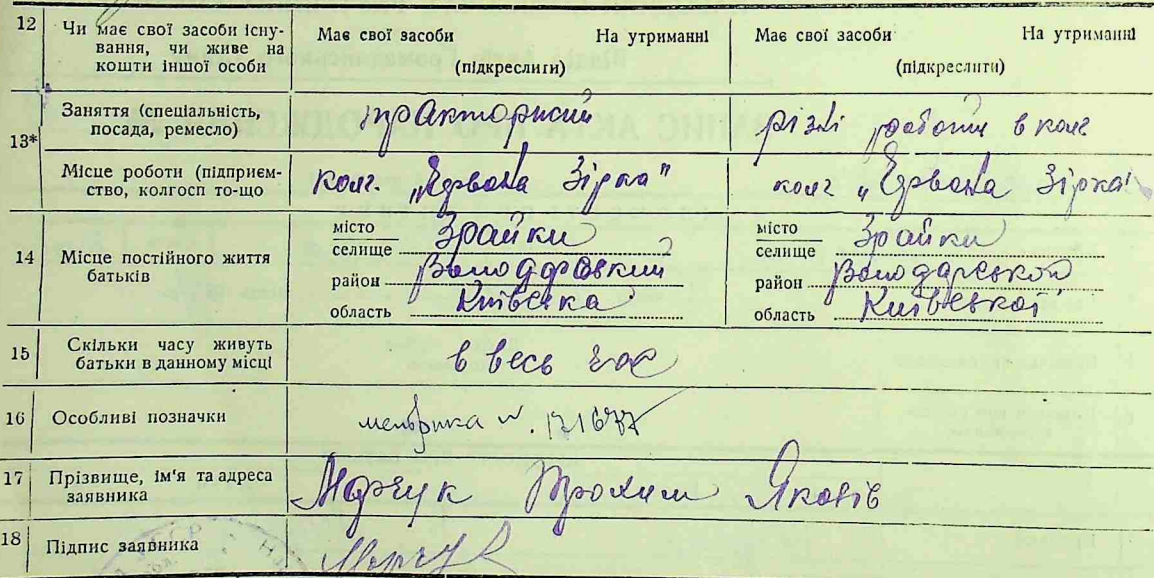 12 Чи має свої засоби існу-
вання, чи живе на
кошти іншої особи
Має свої засоби На утриманні
(підкреслити)
Має свої засоби На утриманні
(підкреслити)
13* Заняття (спеціальність,
посада, ремесло)
тракторист
різні роботи в колг
Місце роботи (підприєм-
ство, колгосп то-що
Колг. „Червона Зірка"
колг „Червона Зірка"
14 Місце постійного життя
батьків
місто
селище Зрайки
район Володарский
область Київська
місто
селище Зрайки
район Володарської
область Київської
15 Скільки часу живуть
батьки в данному місці
в весь час
16 Особливі позначки
метрика №.
17 Прізвище, ім'я та адреса
заявника
Марчук Трохим Яковів
18 Підпис заявника
Марчук